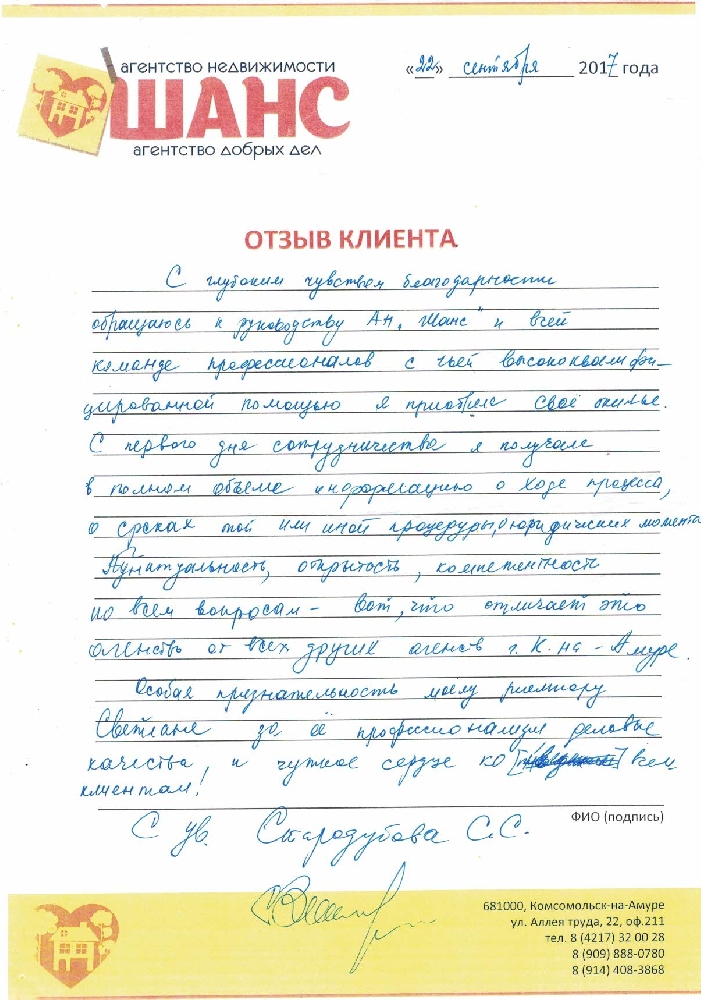 агентство недвижимости
ШАНС
агентство добрых дел
«22» сентября 2017 года
ОТЗЫВ КЛИЕНТА
С глубоким чувством благодарности
обращаюсь к руководству Ан „Шанс" и всей
команде профессионалов с чьей высококвалифи-
цированной помощью я приобрела своё жильё.
С первого дня сотрудничества я получала
в полном объёме информацию о ходе процесса,
о сроках той или иной процедуры, о юридических момента
Пунктуальность, открытость, компетентность
по всем вопросам - вот, что отличает это
агенство от всех других агенств г. К. на - Амуре
Особая признательность моему риелтору
Светлане за её профессионализм деловые
качества, и чуткое сердце ко всем
клиентам!
ФИО (подпись)
С ув. Стародубова С.С.
681000, Комсомольск-на-Амуре
ул. Аллея труда, 22, оф.211
тел. 8 (4217) 32 00 28
8 (909) 888-0780
8 (914) 408-3868